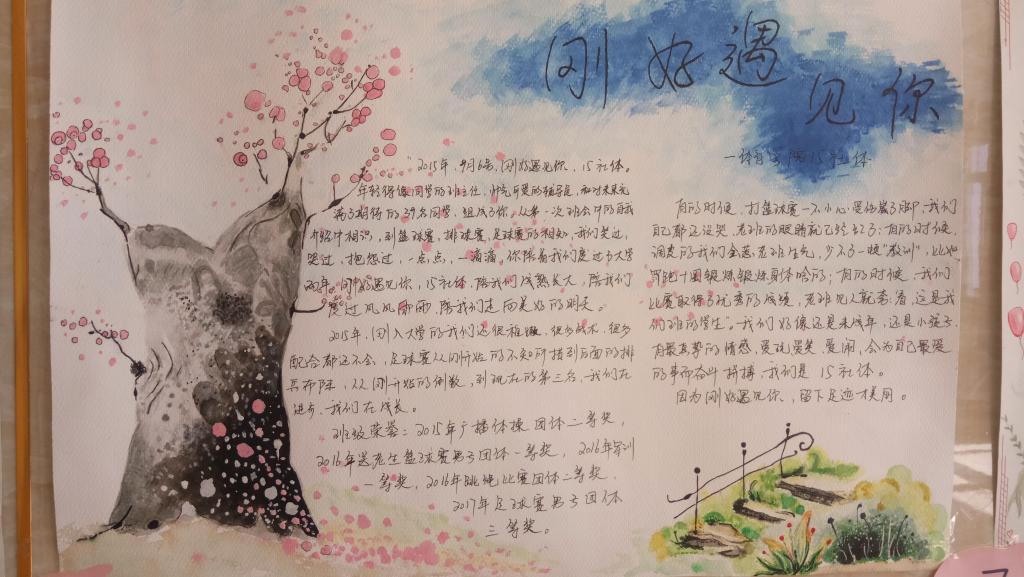 刚好遇见你
—体育学院15社体
"2015年,9月6号,刚好遇见你,15社体。
年轻得像同学的班主任,帅气可爱的辅导员,和对未来充
满了期待的39名同学,组成了你。从第一次班会中的自我
介绍中相识,到篮球赛,排球赛,足球赛的相知,我们笑过,
哭过,抱怨过,一点点,一滴滴。你陪着我们度过了大学
两年。刚好遇见你,15社体,陪我们成熟长大,陪我们
度过风风雨雨,陪我们走向美好的明天。
2015年,刚入大学的我们还很稚嫩,很多战术,很多
配合都还不会,足球赛从刚开始的不知所措到后面的排
兵布阵,从刚开始的倒数,到现在的第三名,我们在
进步,我们在成长。
班级荣誉:2015年广播体操团体二等奖,
2016年送老生篮球赛男子团体一等奖,2016年军训
一等奖,2016年跳绳比赛团体二等奖,
2017年足球赛男子团体
三等奖。
有的时候,打篮球赛一不小心受伤崴了脚,我们
自己都还没哭,老班的眼睛就已经红了;有的时候,
调皮的我们会惹老班生气,少不了一顿"教训",比如
罚绝十圈锻炼锻炼身体啥的;有的时候,我们
比赛取得了优秀的成绩,老班见人就夸:看,这是我
们班的学生"。我们好像还是未成年,还是小孩子,
有最真挚的情感,爱玩爱笑,爱闹,会为自己最爱
的事而奋斗拼搏,我们是15社体。
因为刚好遇见你,留下足迹才美丽。